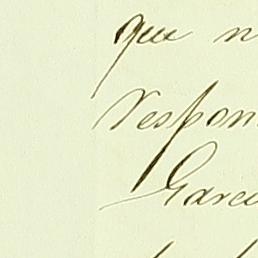 que n
respon
Garci